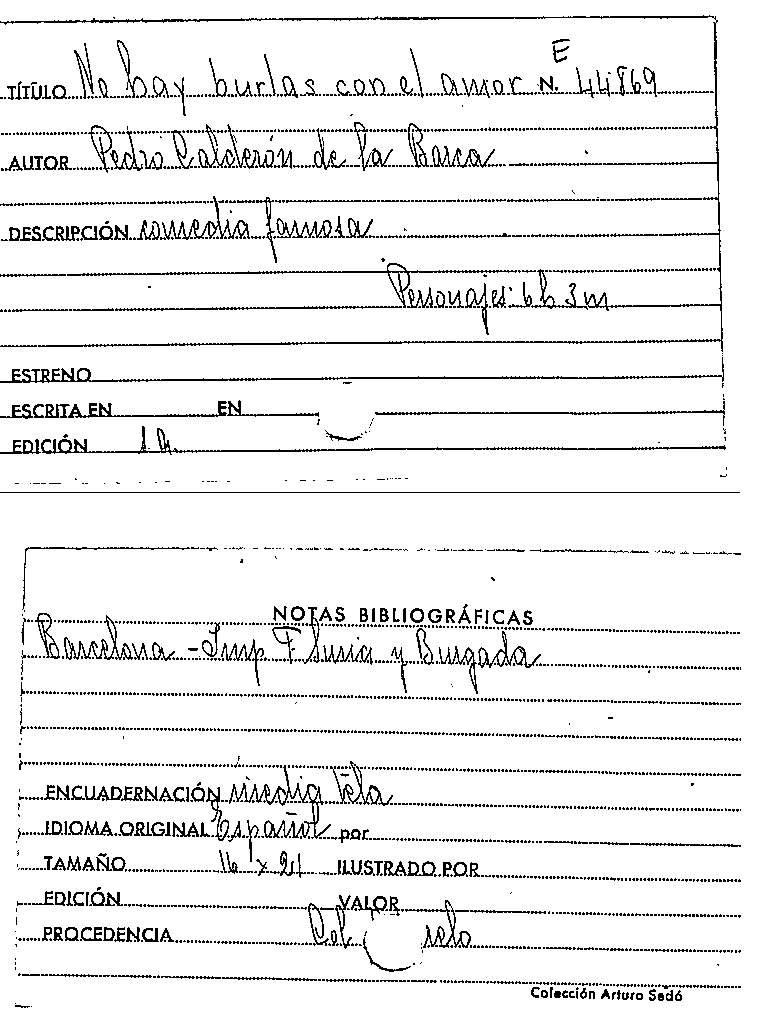 E
TÍTULO No hay burlas con el amor N. 44869
AUTOR Pedro Calderón de la Barca
DESCRIPCIÓN comedia famosa
Personajes: 6 h 3 m
ESTRENO
ESCRITA EN EN
EDICIÓN
NOTAS BIBLIOGRÁFICAS
Barcelona - Imp F. Suria y Burgada
ENCUADERNACIÓN media tela
IDIOMA ORIGINAL Español por
TAMAÑO 16 x 21 ILUSTRADO POR
EDICIÓN VALOR
PROCEDENCIA Col
Colección Arturo Sedó